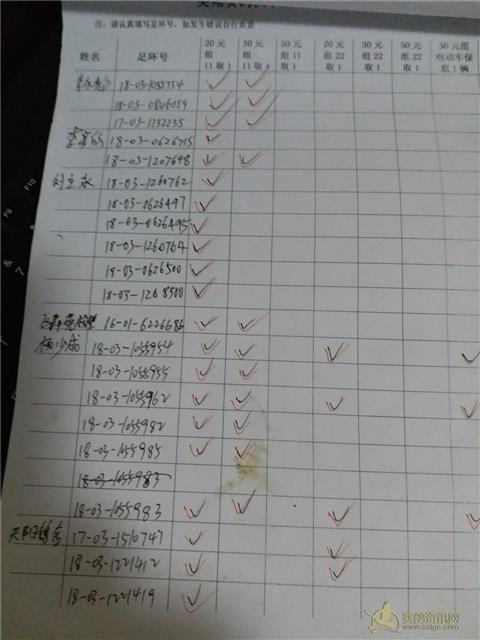 注: 请认真填写足环号、如发生错误自行负责
姓名 足环号 20元组11取1 30元组11取1 50元组11取1 20元组22取1 30元组22取1 50元组22取1 50元组电动车保底1辆
18-03-1055754 ✓ ✓
18-03-0846059 ✓ ✓
17-03-1132235 ✓ ✓
18-03-0626715 ✓
18-03-1207648 ✓ ✓
18-03-1260762 ✓
18-03-0626497 ✓
18-03-0626495 ✓
18-03-1260764 ✓
18-03-0626500 ✓
18-03-1268500 ✓
16-01-6226686 ✓ ✓
杨少成 18-03-1055954 ✓ ✓ ✓ ✓
18-03-1055955 ✓ ✓
18-03-1055962 ✓ ✓ ✓ ✓
18-03-1055982 ✓ ✓
18-03-1055985 ✓ ✓
18-03-1055983
18-03-1055983 ✓ ✓ ✓ ✓
17-03-1510747 ✓ ✓
18-03-1221412 ✓ ✓
18-03-1221419 ✓